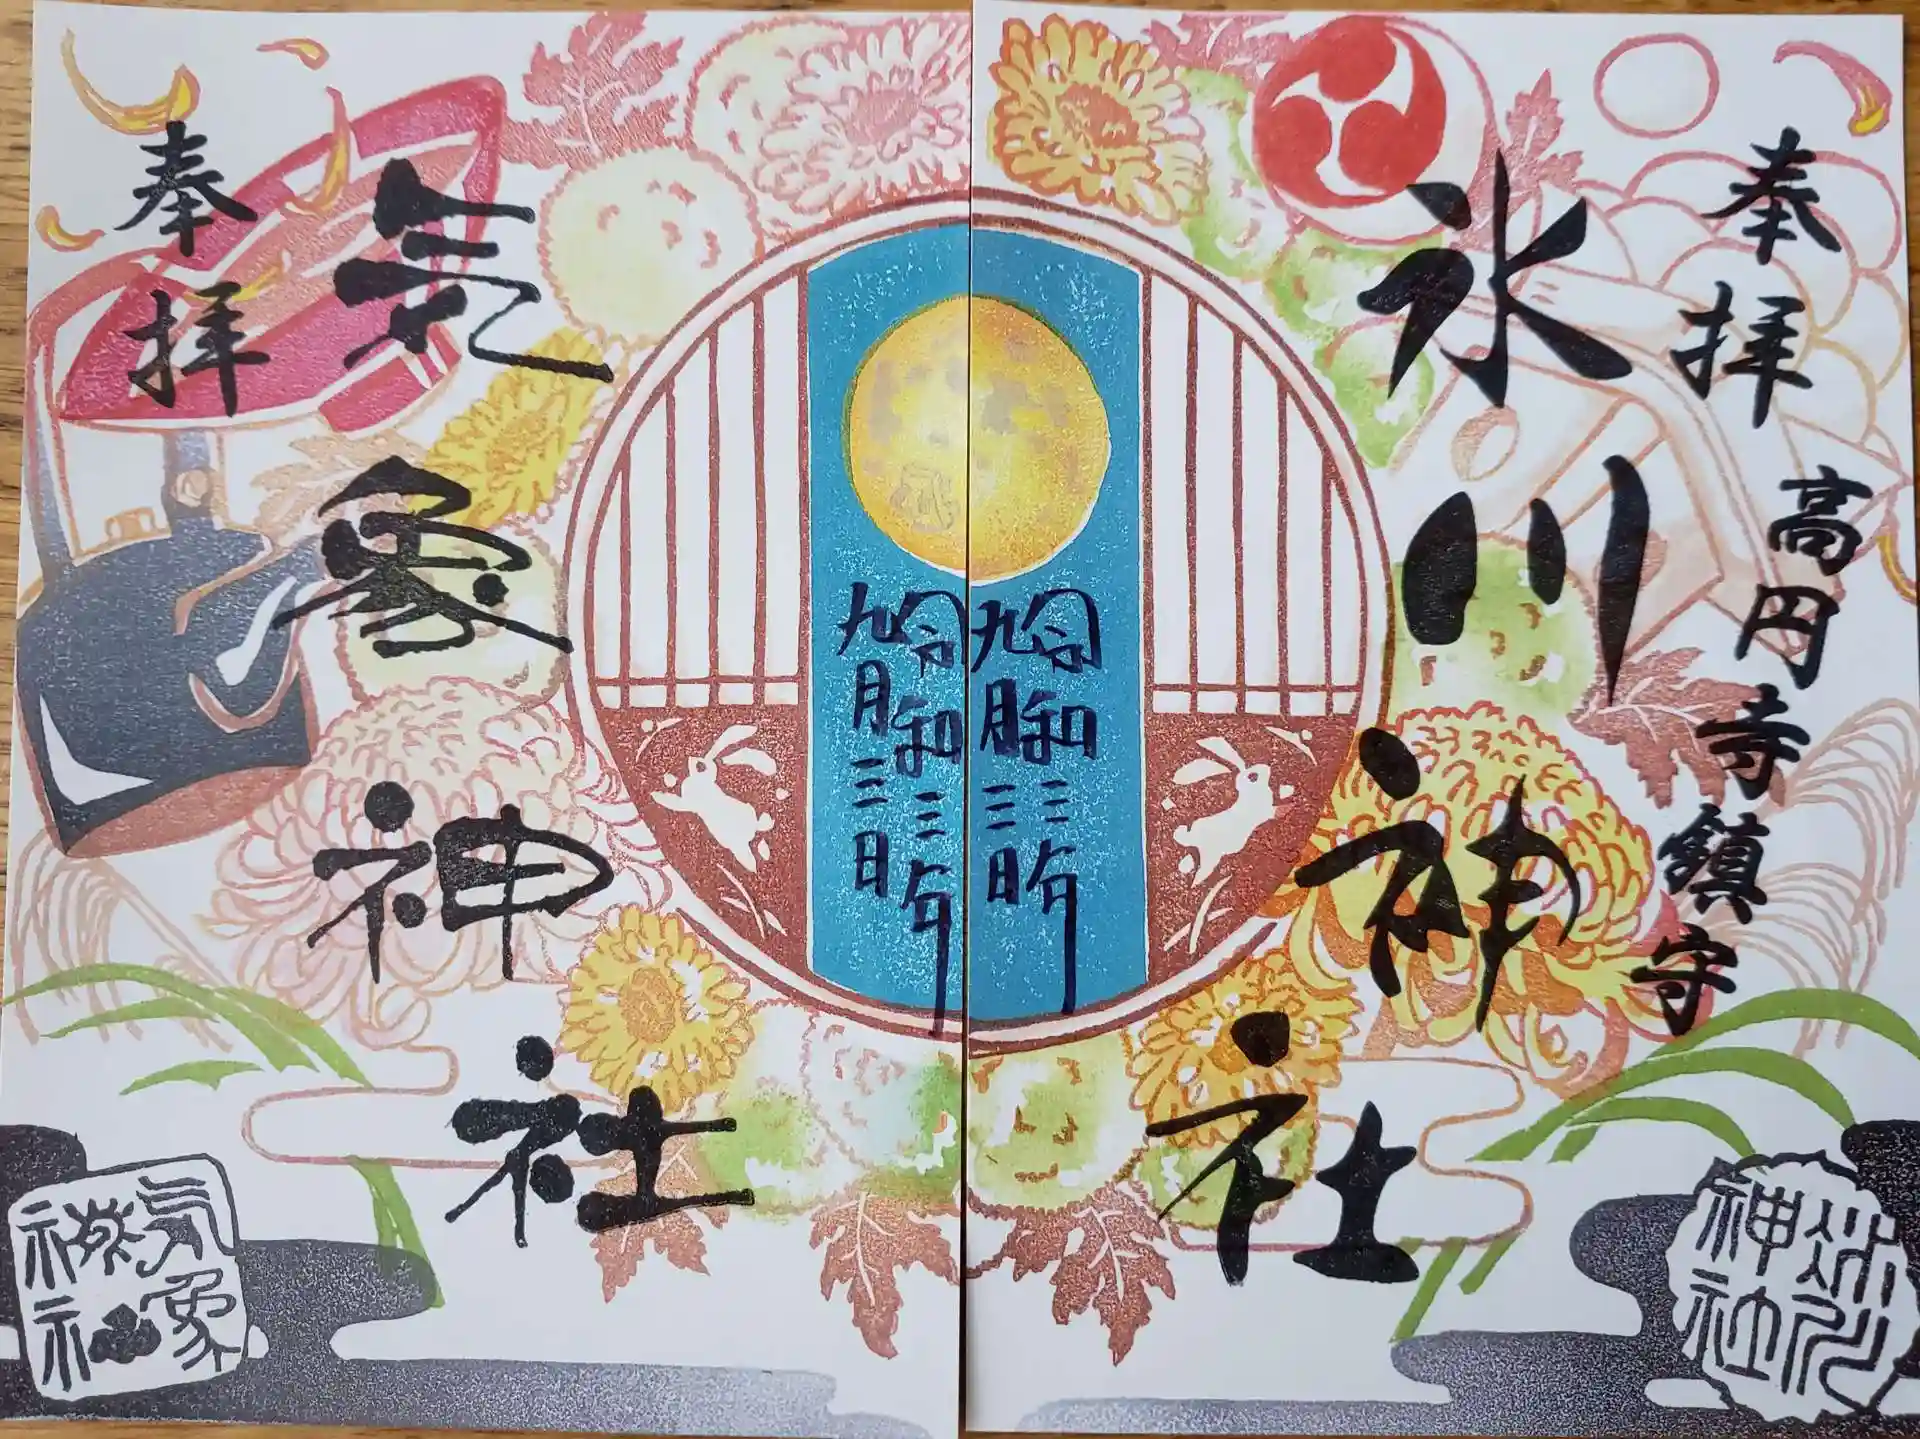 奉拝
高円寺鎮守
氷川神社
令和三年
九月三日
氷川
神社
令和三年
九月三日
気象神社
奉拝
気象
神社